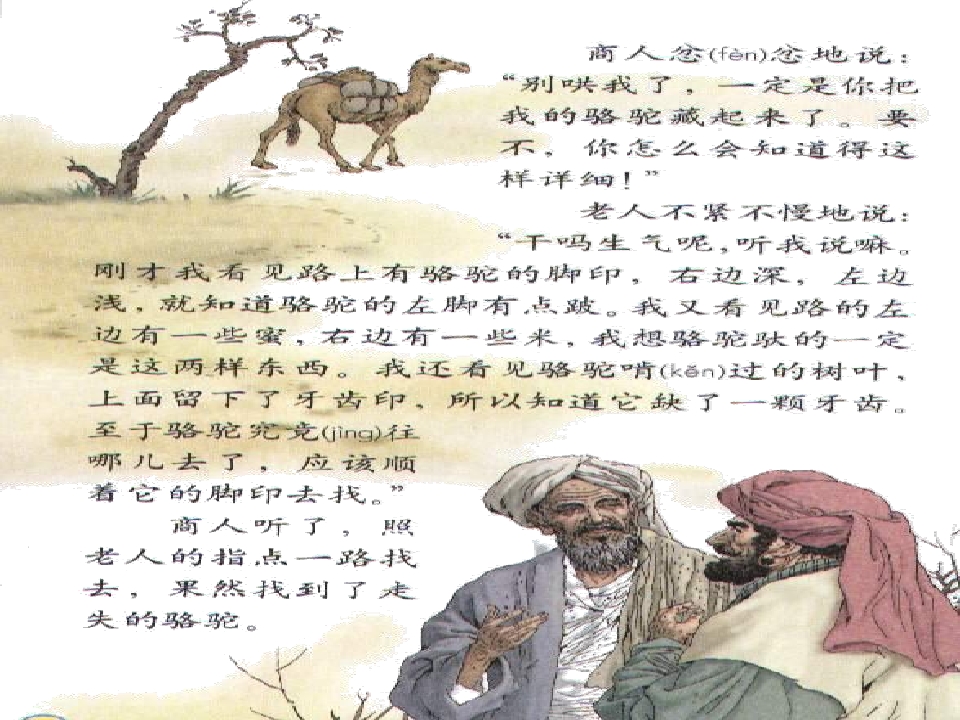 商人忿(fèn)忿地说：
“别哄我了，一定是你把
我的骆驼藏起来了。要
不，你怎么会知道得这
样详细！”
老人不紧不慢地说：
“干吗生气呢，听我说嘛。
刚才我看见路上有骆驼的脚印，右边深，左边
浅，就知道骆驼的左脚有点跛。我又看见路的左
边有一些蜜，右边有一些米，我想骆驼驮的一定
是这两样东西。我还看见骆驼啃(kěn)过的树叶，
上面留下了牙齿印，所以知道它缺了一颗牙齿。
至于骆驼究竟(jìng)往
哪儿去了，应该顺
着它的脚印去找。”
商人听了，照
老人的指点一路找
去，果然找到了走
失的骆驼。